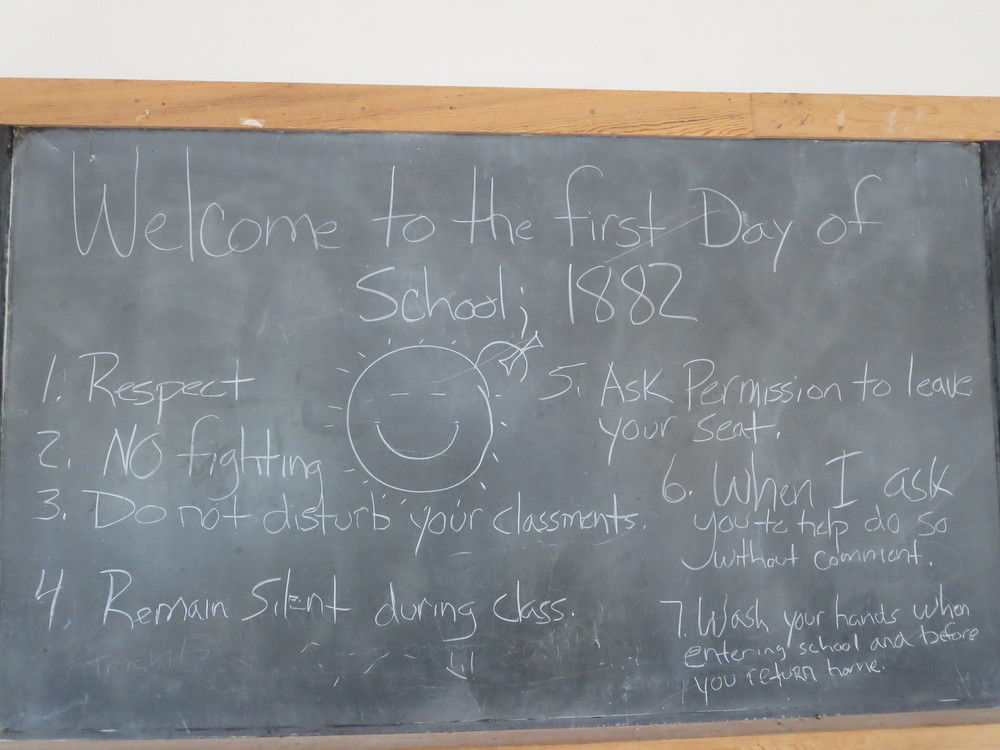 Welcome to the first Day of
School; 1882
1. Respect
2. NO fighting
3. Do not disturb your classments.
4. Remain Silent during class.
5. Ask Permission to leave
your seat.
6. When I ask
you to help do so
without comment.
7. Wash your hands when
entering school and before
you return home.